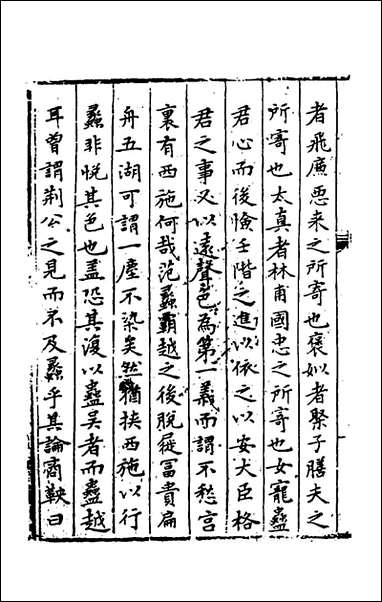 者飛廉惡来之所寄也褒姒者聚子膳夫之
所寄也太真者林甫國忠之所寄也女寵蠱
君心而後憸壬階之進以依之以安大臣格
君之事又以遠聲色為第一義而謂不愁宫
裏有西施何哉范蠡霸越之後脱屣冨貴扁
舟五湖可謂一塵不染矣然猶挟西施以行
蠡非恱其色也盖恐其復以蠱吴者而蠱越
耳曾謂荆公之見而不及蠡乎其論商鞅曰